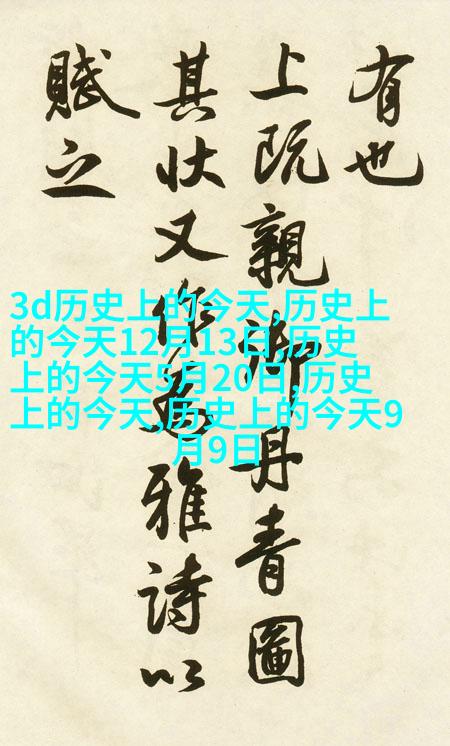 有也
上既親御丹青圖
其状又作為雅詩以
賦之
3d历史上的今天,历史上
的今天12月13日,历史
上的今天5月20日,历史
上的今天,历史上的今天9
月9日